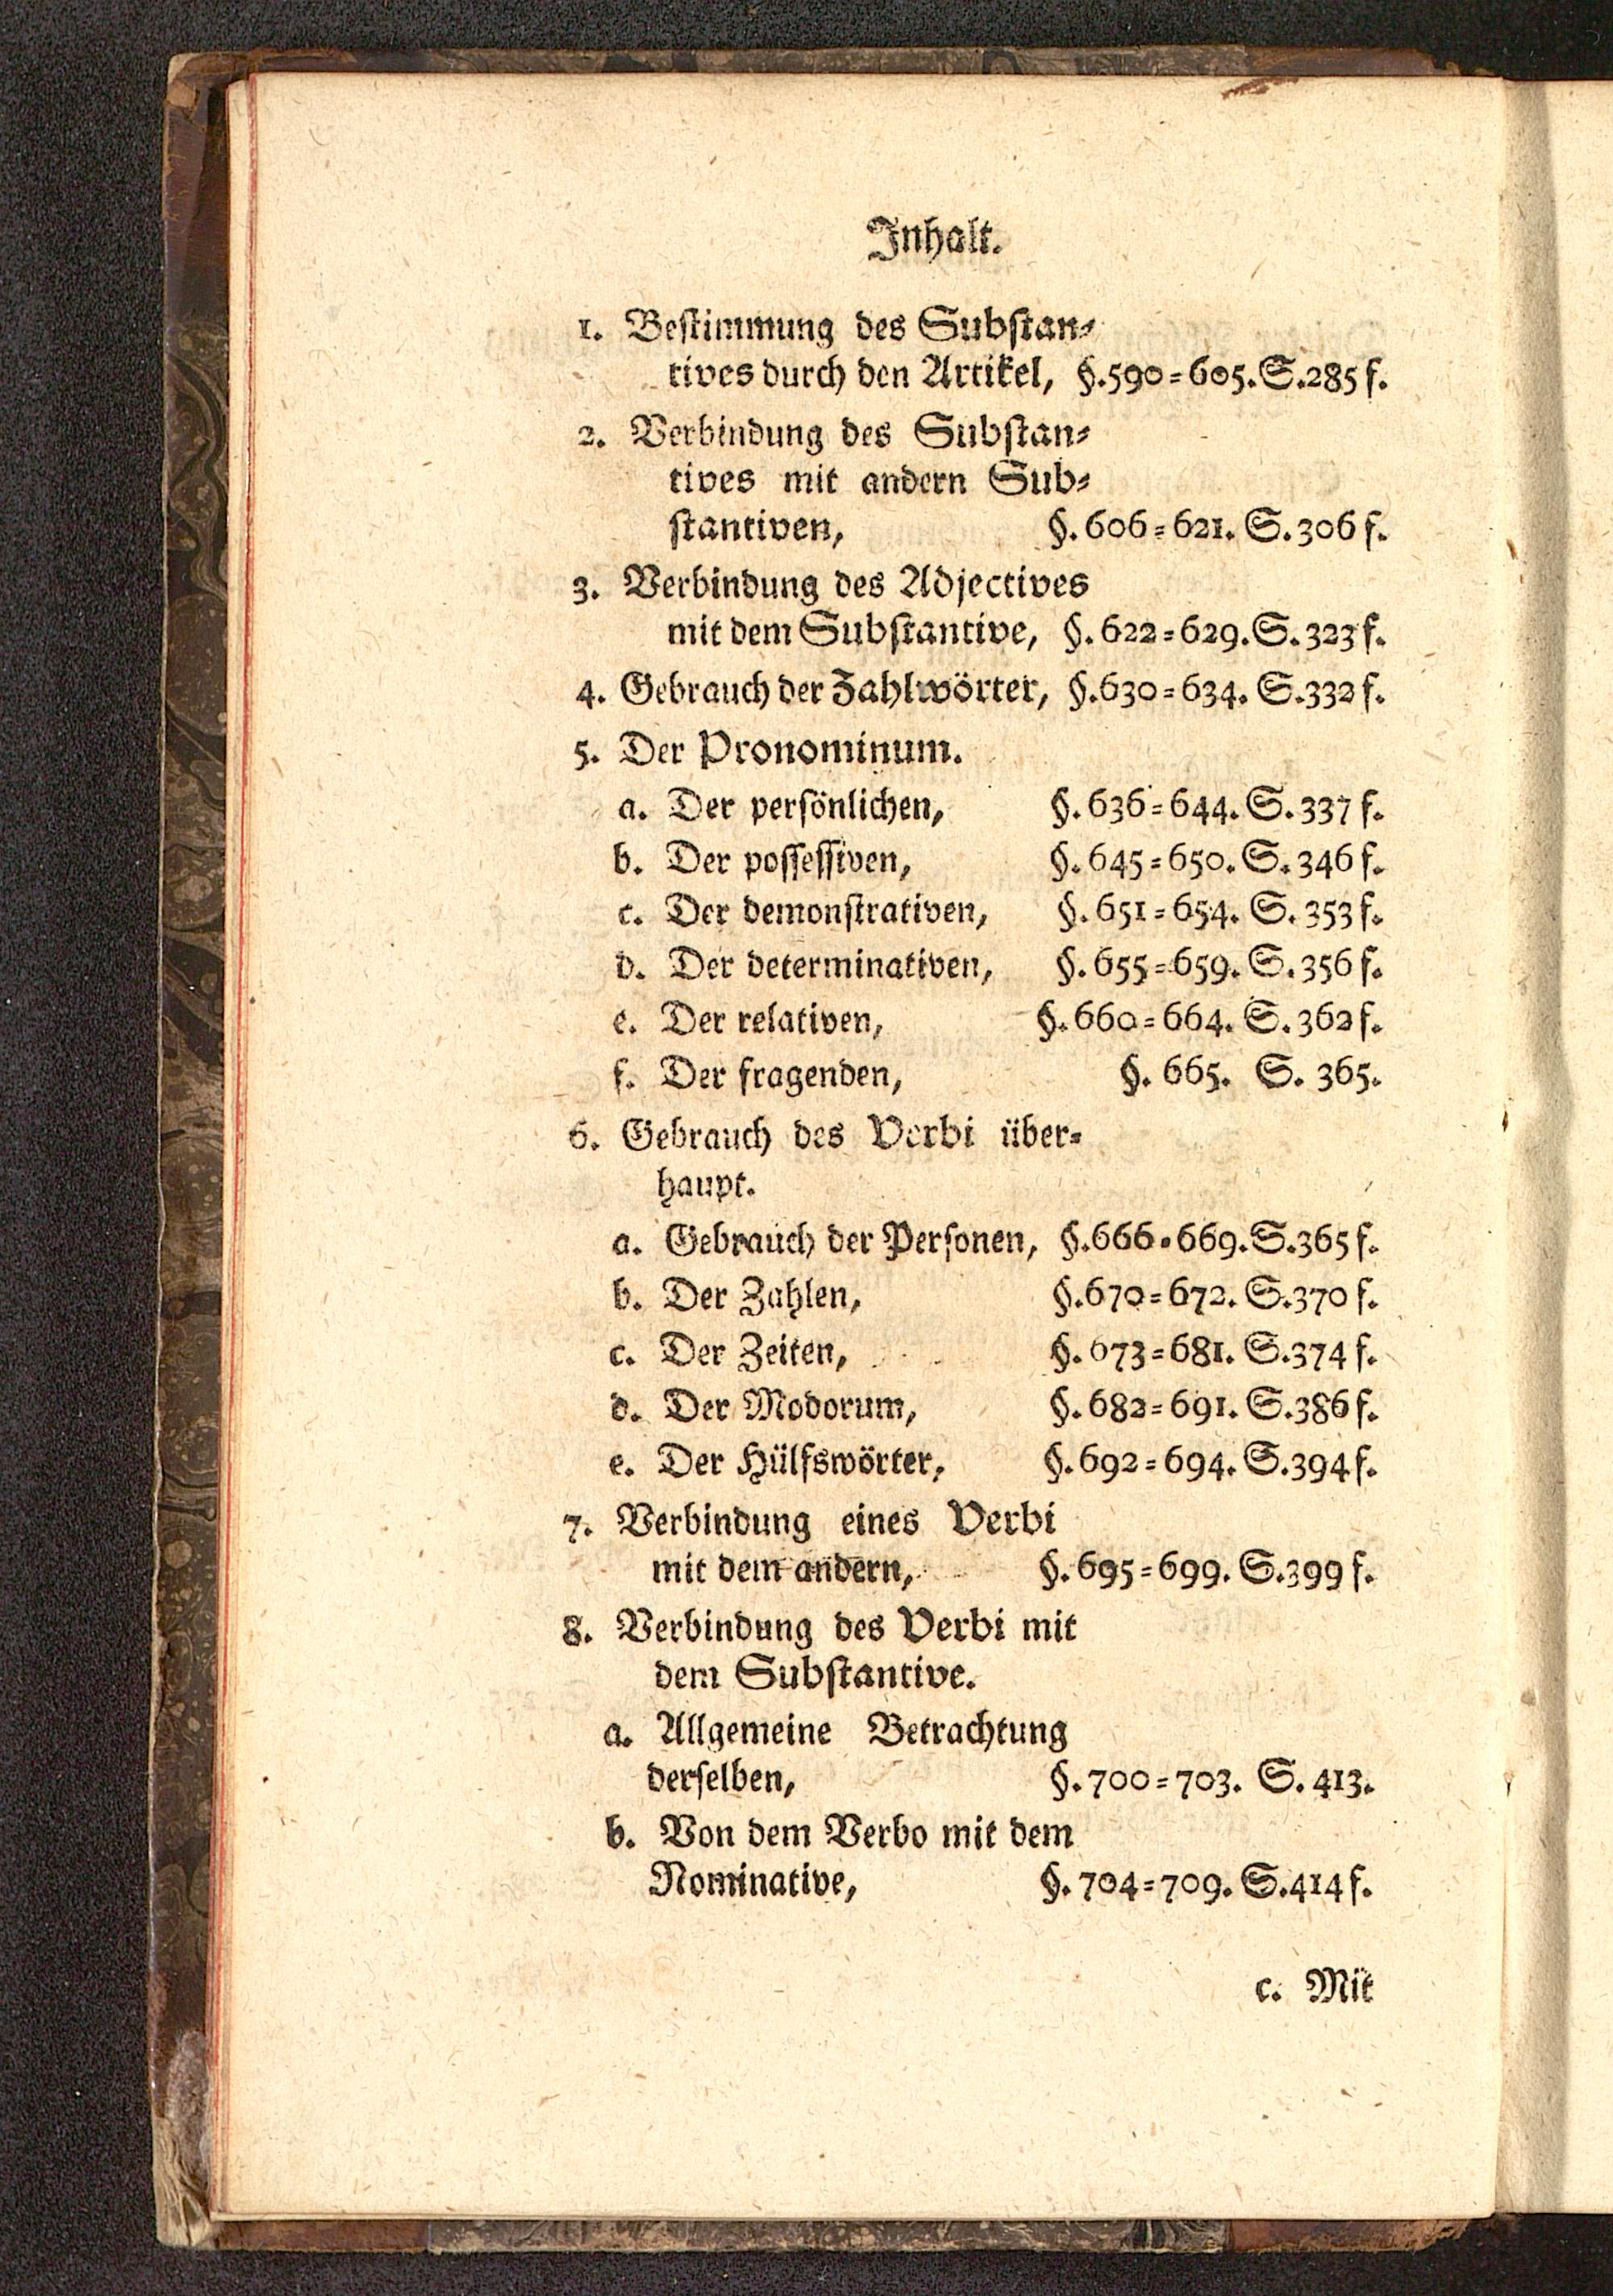 Inhalt.
1. Bestimmung des Substan-
tives durch den Artikel, §.590-605. S.285 f.
2. Verbindung des Substan-
tives mit andern Sub-
stantiven, §. 606-621. S. 306 f.
3. Verbindung des Adjectives
mit dem Substantive, §. 622-629. S. 323 f.
4. Gebrauch der Zahlwörter, §.630-634. S.332 f.
5. Der Pronominum.
a. Der persönlichen, §. 636-644. S. 337 f.
b. Der possessiven, §. 645-650. S. 346 f.
c. Der demonstrativen, §. 651-654. S. 353 f.
d. Der determinativen, §. 655-659. S. 356 f.
e. Der relativen, §. 660-664. S. 362 f.
f. Der fragenden, §. 665. S. 365.
6. Gebrauch des Verbi über-
haupt.
a. Gebrauch der Personen, §.666-669. S.365 f.
b. Der Zahlen, §.670-672. S.370 f.
c. Der Zeiten, §. 673-681. S.374 f.
d. Der Modorum, §. 682-691. S.386 f.
e. Der Hülfswörter, §. 692-694. S.394 f.
7. Verbindung eines Verbi
mit dem andern, §. 695-699. S.399 f.
8. Verbindung des Verbi mit
dem Substantive.
a. Allgemeine Betrachtung
derselben, §. 700-703. S. 413.
b. Von dem Verbo mit dem
Nominative, §. 704-709. S.414 f.
c. Mit